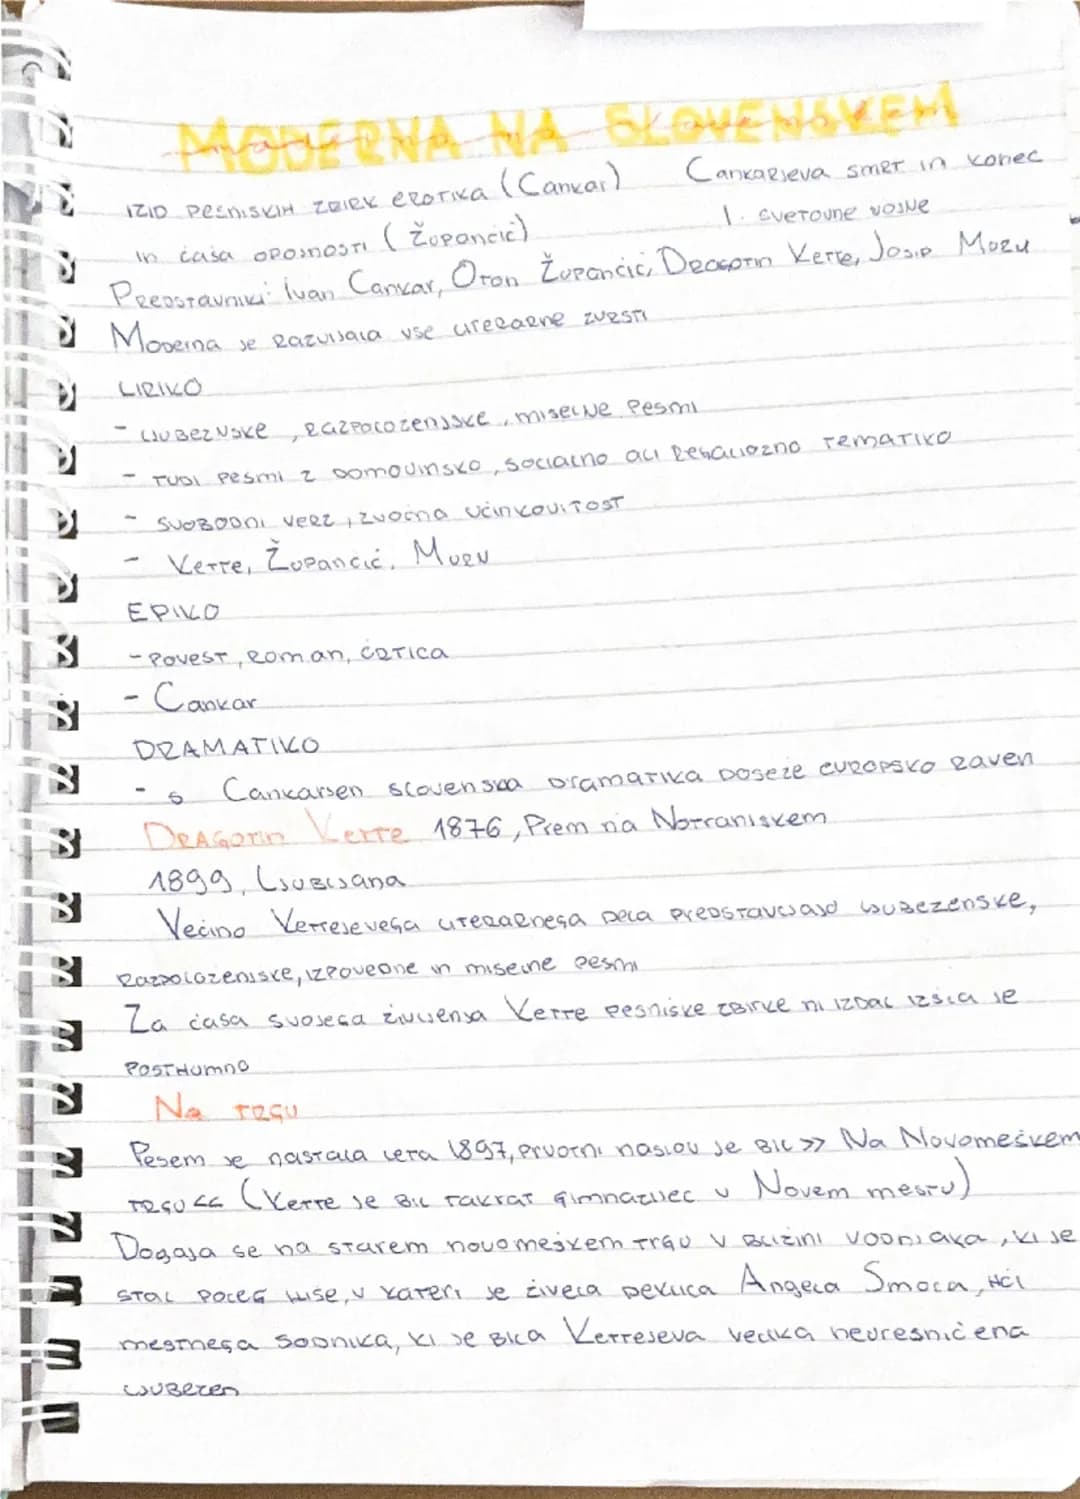 MODERNA NA SLOVENSKEM
IZID PESNIŠKIH ZBIRK EROTIKA (Cankar)
Cankarjeva smrt in konec
in čaša opojnosti (Župančič)
1. svetovne vojne
Predstavniki: Ivan Cankar, Oton Župančič, Dragotin Kette, Josip Murn
Moderna je razvijala vse literarne zvrsti
LIRIKO
- ljubezNske, razpoloženjske, miselne pesmi
- TUDI pesmi z domovinsko, socialno ali religiozno tematiko
- SVOBODNI verz, zvočna učinkovitost
- Kette, Župančič, Murn
EPIKO
- Povest, roman, črtica
- Cankar
DRAMATIKO
- s Cankarjem slovenska dramatika doseže evropsko raven
Dragotin Kette 1876, Prem na Notranjskem
1899, Ljubljana
Večino Kettejevega literarnega dela predstavljajo ljubezenske,
razpoloženjske, izpovedne in miselne pesmi
Za časa svojega življenja Kette pesniške zbirke ni izdal izšla je
POSTHUMNO
Na trgu
Pesem je nastala leta 1897, prvotni naslov je bil >> Na Novomeškem
trgu << (Kette je bil takrat gimnazijec v Novem mestu)
Dogaja se na starem novomeškem trgu v bližini vodnjaka, ki je
stal poleg hiše, v kateri je živela deklica Angela Smola, hči
mestnega sodnika, ki je bila Kettejeva velika neuresničena
ljubezen